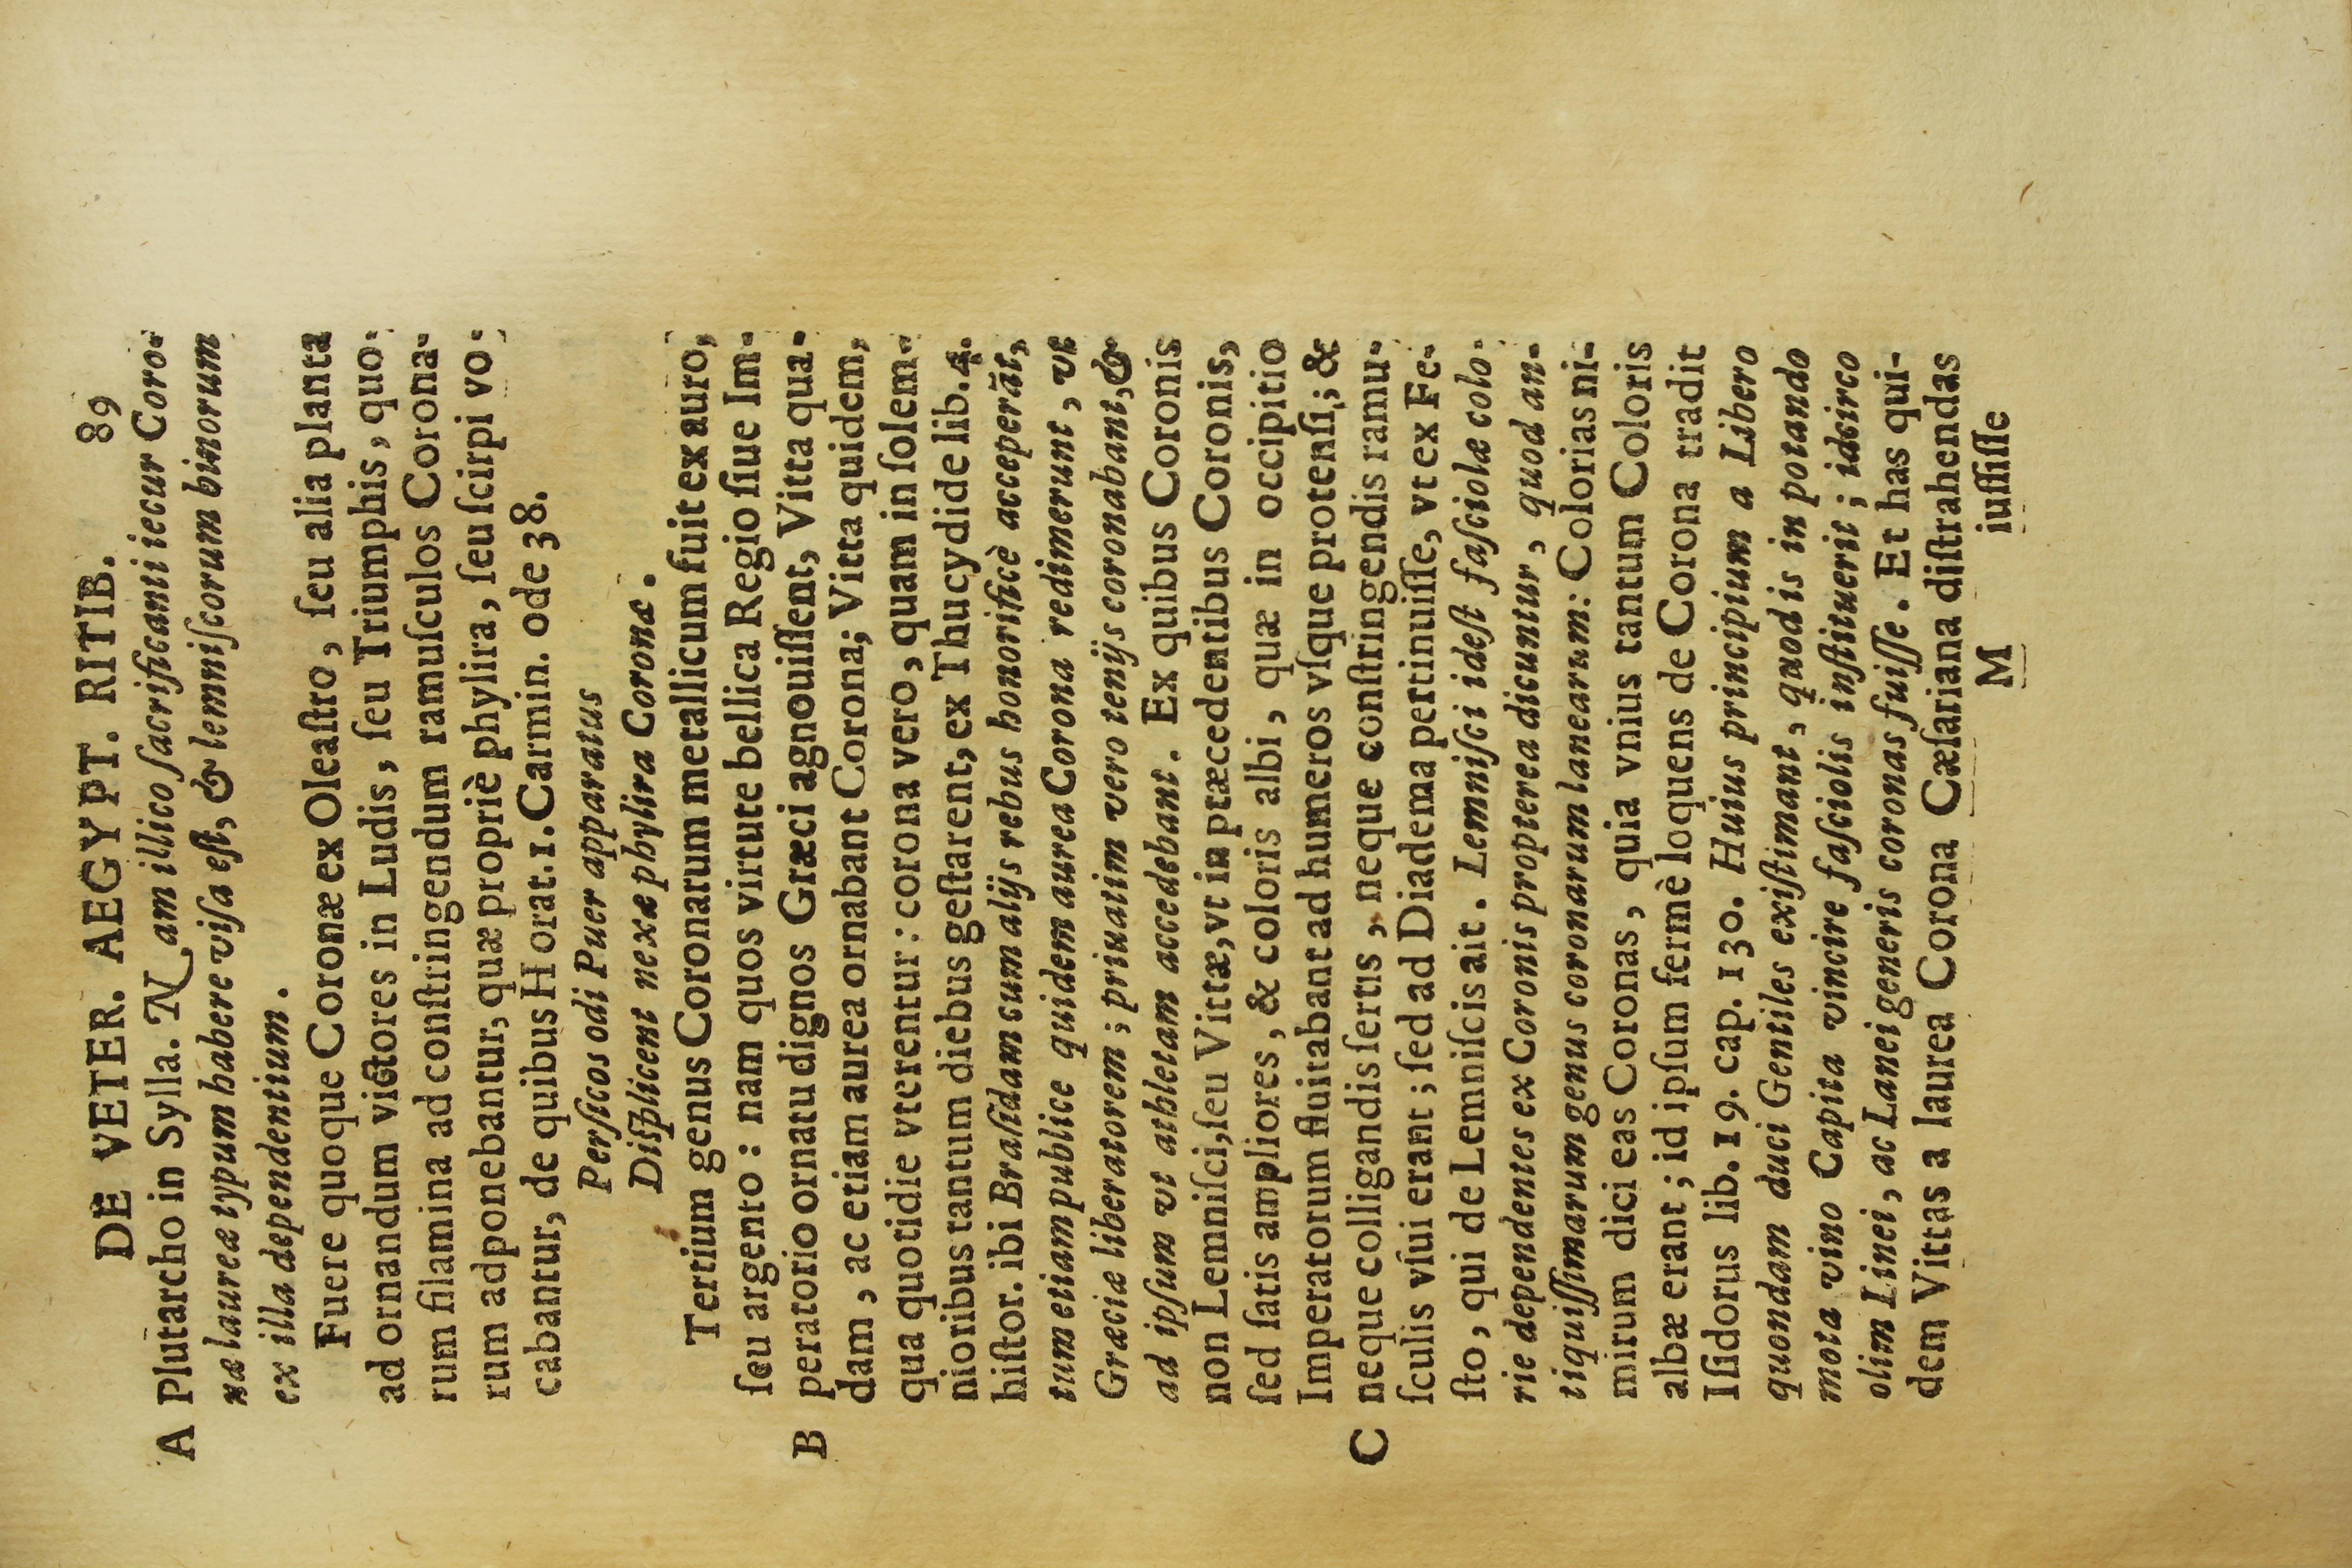 DE VETER. AEGYPT. RITIB. 89
A Plutarcho in Sylla. Nam illico ſacrificanti iecur Coro-
næ laureæ typum habere viſa eſt, & lemniſcorum binorum
ex illa dependentium.
Fuere quoque Coronæ ex Oleaſtro, ſeu alia planta
ad ornandum victores in Ludis, ſeu Triumphis, quo-
rum filamina ad conſtringendum ramuſculos Corona-
rum adponebantur, quæ propriè phylira, ſeu ſcirpi vo-
cabantur, de quibus Horat. 1. Carmin. ode 38.
Perſicos odi Puer apparatus
Diſplicent nexæ phylira Coronæ.
Tertium genus Coronarum metallicum fuit ex auro,
ſeu argento: nam quos virtute bellica Regio ſiue Im-
B peratorio ornatu dignos Græci agnouiſſent, Vitta qua-
dam, ac etiam aurea ornabant Corona; Vitta quidem,
qua quotidie vterentur: corona vero, quam in ſolem-
nioribus tantum diebus geſtarent, ex Thucydide lib. 4.
hiſtor. ibi Braſidam cum alijs rebus honorificè acceperãt,
tum etiam publice quidem aurea Corona redimerunt, vt
Græciæ liberatorem; priuatim vero tenijs coronabant, &
ad ipſum vt athletam accedebant. Ex quibus Coronis
non Lemniſci, ſeu Vittæ, vt in præcedentibus Coronis,
ſed ſatis ampliores, & coloris albi, quæ in occipitio
Imperatorum fluitabant ad humeros vſque protenſi; &
C neque colligandis ſertis, neque conſtringendis ramu-
ſculis vſui erant; ſed ad Diadema pertinuiſſe, vt ex Fe-
ſto, qui de Lemniſcis ait. Lemniſci ideſt faſciolæ colo-
rie dependentes ex Coronis propterea dicuntur, quod an-
tiquiſſimarum genus coronarum lanearum: Colorias ni-
mirum dici eas Coronas, quia vnius tantum Coloris
albæ erant; id ipſum fermè loquens de Corona tradit
Iſidorus lib. 19. cap. 130. Huius principium a Libero
quondam duci Gentiles exiſtimant, quod is in potando
mota vino Capita vincire faſciolis inſtituerit; idcirco
olim Linei, ac Lanei generis coronas fuiſſe. Et has qui-
dem Vittas a laurea Corona Cæſariana diſtrahendas
M iuſſiſſe